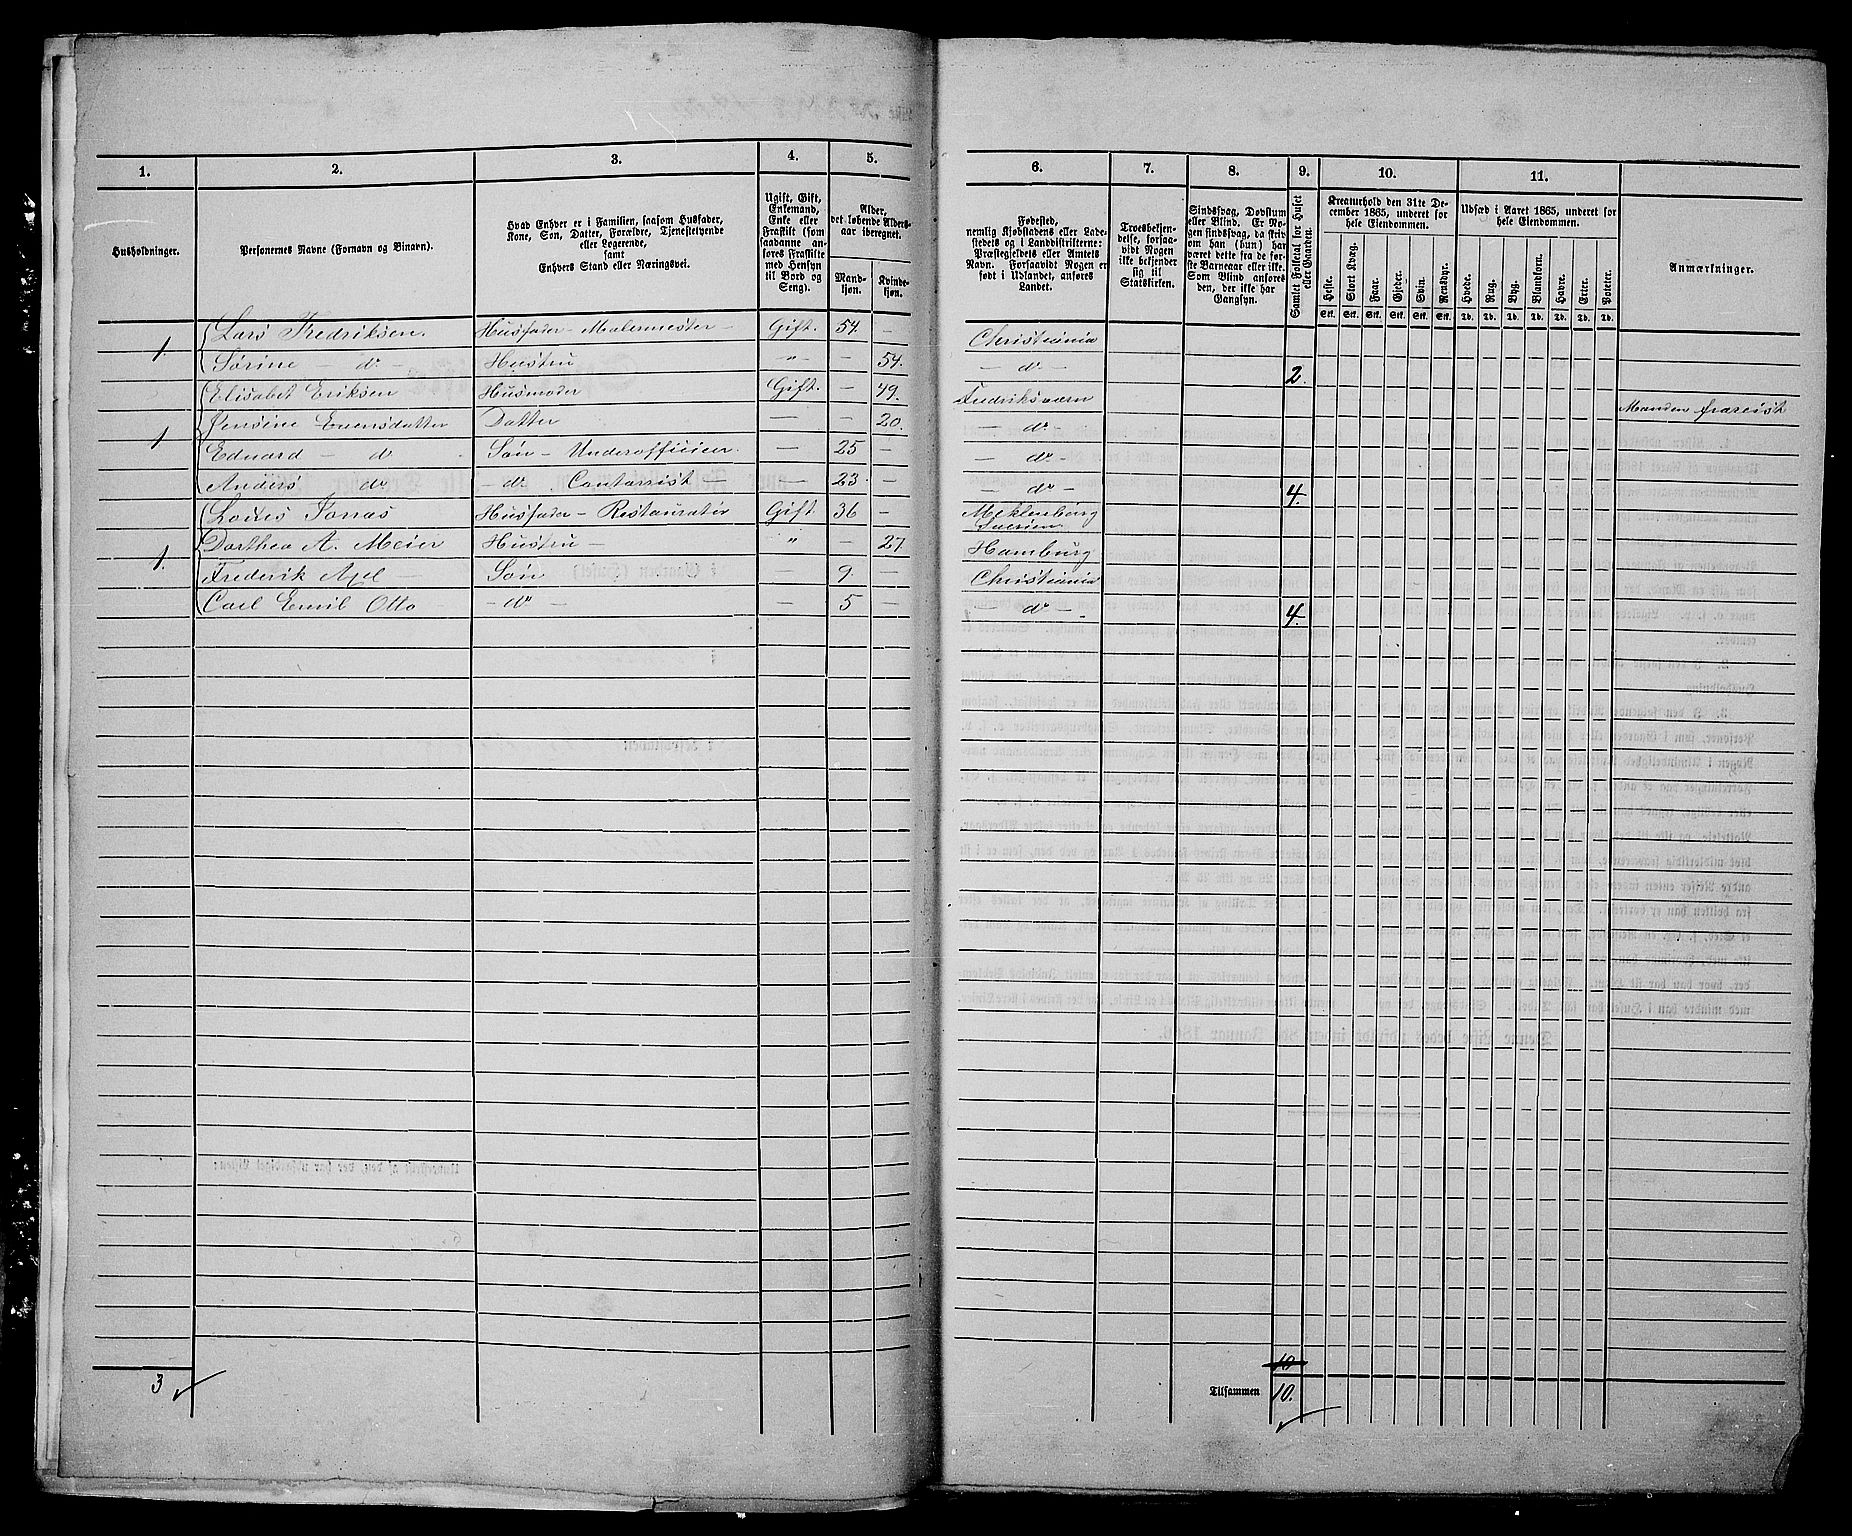 1.
2.
3.
4.
5.
Husholdninger.
Personernes Navne (Fornavn og Binavn).
Hvad Enhver er i Familien, saasom Husfader,
Kone, Søn, Datter, Forældre, Tjenestetyende
eller Logerende,
samt
Enhvers Stand eller Næringsvei.
Ugift, Gift,
Enkemand,
Enke eller
Fraskilt (som
saadanne an-
føres Fraskilte
med Hensyn
til Bord og
Seng).
Alder,
det løbende Alders-
aar iberegnet.
Mand-
kjøn.
Kvinde-
kjøn.
1. Lars Fredriksen. Husfader - Malermester - Gift. 54. -
Sørine - do - Hustru " - 54.
Elisabet Eriksen Husmoder Gift. - 49.
1 Jensine Evensdatter Datter - - 20.
Eduard - do Søn - Underofficier. - 25 -
Anders do - do Contorrist - - 23. -
Louis Jonas Husfader - Restauratør Gift 36 -
1. Dorthea A. Meier Hustru - " - 27
Frederik Apel - Søn - 9. -
Carl Emil Otto - - do - - 5 -
3
6.
7.
8.
9.
10.
11.
Fødested,
nemlig Kjøbstadens eller Lade-
stedets og i Landdistrikterne:
Præstegjeldets eller Amtets
Navn. Forsaavidt Nogen er
født i Udlandet, anføres
Landet.
Troesbekjen-
delse, forsaa-
vidt Nogen
ikke bekjender
sig til
Statskirken.
Sindssvag, Døvstum
eller Blind. Er No-
gen sindssvag, da skriv
om han (hun) har
været dette fra de før-
ste Barneaar eller ikke.
Som Blind anføres
den, der ikke har
Gangsyn.
Samlet Folketal for Huset
eller Gaarden.
Kreaturhold den 31te De-
cember 1865, underet for
hele Eiendommen.
Heste.
Stort Kvæg.
Faar.
Gjeder.
Svin.
Rensdyr.
Stk. Stk. Stk. Stk. Stk. Stk.
Udsæd i Aaret 1865, underet for
hele Eiendommen.
Hvede.
Rug.
Byg.
Blandkorn.
Havre.
Erter.
Poteter.
Td. Td. Td. Td. Td. Td. Td.
Anmærkninger.
Christiania
- do - 2.
Fredriksværn
- do - Manden frareist
- do -
- do - 4.
Meklenburg
Hamburg
Christiania
do - 4.
10
Tilsammen 10.